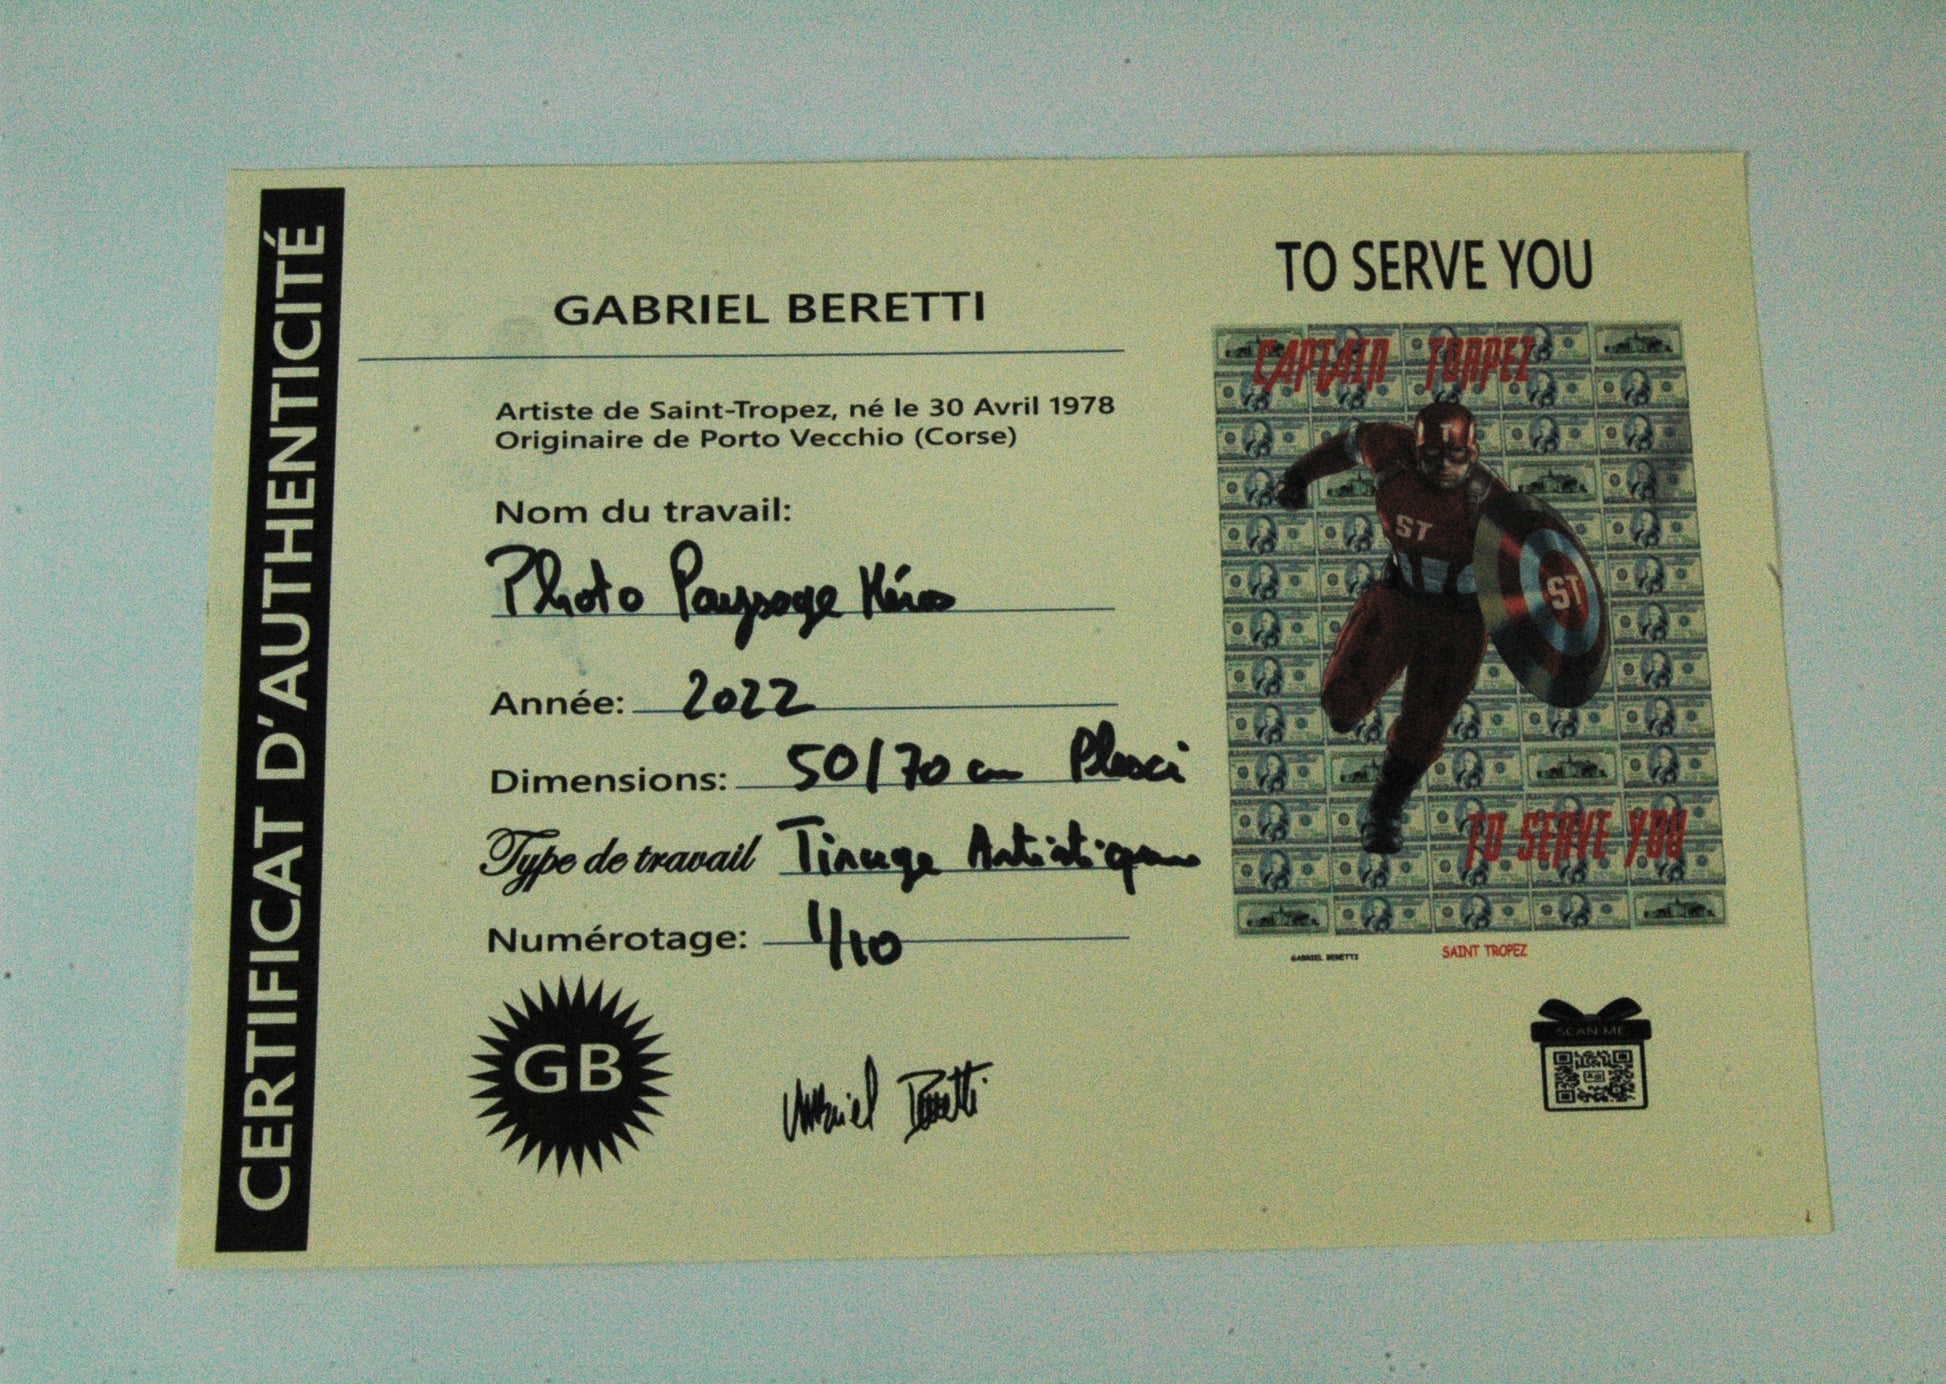 CERTIFICAT D'AUTHENTICITÉ
GABRIEL BERETTI
Artiste de Saint-Tropez, né le 30 Avril 1978
Originaire de Porto Vecchio (Corse)
Nom du travail:
Photo Paysage Héros
Année: 2022
Dimensions: 50/70 cm Plexi
Type de travail Tirage Artistique
Numérotage: 1/10
GB
Gabriel Beretti
TO SERVE YOU
CAPTAIN TORPEZ
T
ST
ST
TO SERVE YOU
GABRIEL BERETTI SAINT TROPEZ
SCAN ME